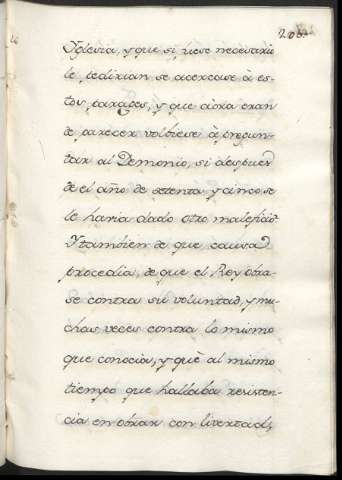 206
Yglesia, y que si fuese necesario
le pedirian se acercase à es-
tos parages, y que aora eran
de parecer volbiese à pregun-
tar al Demonio, si despues
de el año de setenta y cinco se
le havia dado otro maleficio
Y tambien de que causa
procedia, de que el Rey obra-
se contra su voluntad, y mu-
chas veces contra lo mismo
que conocia, y què al mismo
tiempo que hallaba resisten-
cia en obrar con livertad,